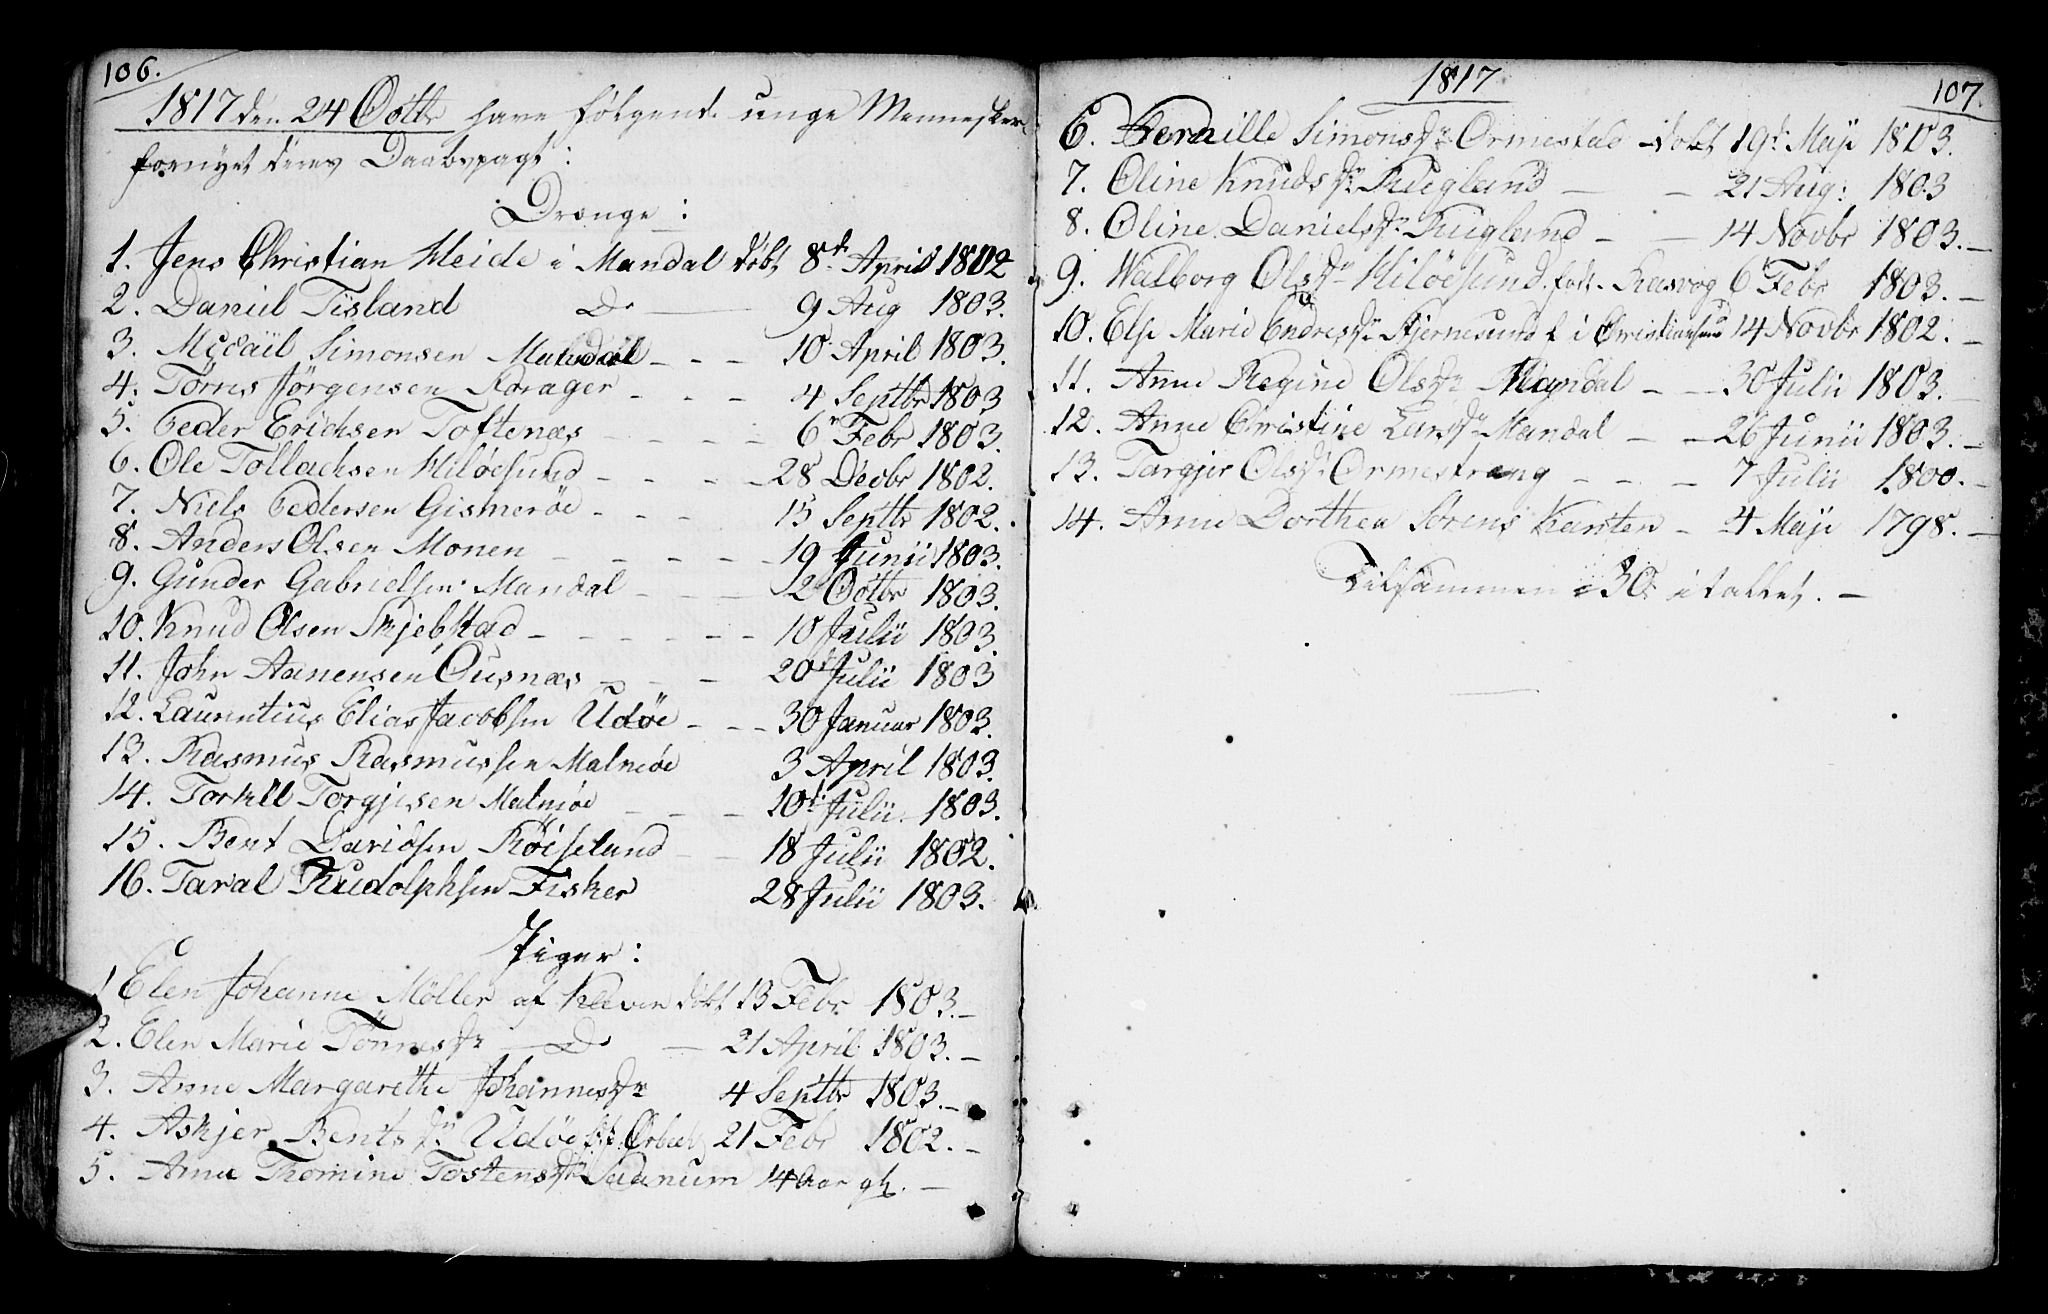 106.
1817 den 24 Octbr have følgende unge Mennesker
fornyet deres Daabspagt:
Drenge:
1. Jens Christian Heide i Mandal døbt 8de April 1802
2. Daniel Tisland Do — 9 Aug 1803.
3. Michail Simonsen Mandal - - - 10 April 1803.
4. Tørris Jørgensen Forager - - - 4 Septbr 1803
5. Peder Erichsen Toftenæs - - - - 6 Febr 1803.
6. Ole Tollachsen Hiløesund - - - - 28 Decbr 1802.
7. Niels Pedersen Gismerøe - - - 15 Septbr 1802.
8. Anders Olsen Monen - - - - - 19 Junii 1803.
9. Gunder Gabrielsen Mandal - - - 2 Octbr 1803.
10. Knud Olsen Skjebstad - - - - - - 10 Julii 1803.
11. John Aanensen Ousnæs - - - 20 Julii 1803
12. Laurentius Elias Jacobsen Udøe - - - 30 Januar 1803.
13. Rasmus Rasmussen Malmøe 3 April 1803.
14. Torkell Torgjesen Malmøe - - - 10de Julii. 1803.
15. Bent Davidsen Røiseland - - 18 Julii 1802.
16. Taral Rudolphsen Fisker 28 Julii 1803.
Piger:
1 Elen Johanne Møller af Kleven døbt 13 Febr 1803. -
2. Elen Marie Tønnesdr — Do — 21 April 1803. -
3. Anne Margarethe Johannesdr 4 Septbr 1803. -
4. Askjer Bentsdr Udøe 21 Febr 1802. -
5. Anne Thomine Tostensdr Sadnum 14 Aar gl. -
1817
107.
6. Pernille Simonsdr Ormestad - døbt 19de Maji 1803.
7. Oline Knudsdr Rugland — — 21 Aug: 1803
8. Oline Danielsdr Rugland - — 14 Novbr 1803. -
9. Walborg Olsdr Hiløesund. fød. Kasvog 6 Febr 1803. -
10. Else Marie Endresdr Hjernesund f i Christiansund 14 Novbr 1802. -
11. Anne Regine Olsdr Mandal - - 30 Julii 1803. -
12. Anne Christine Larsdr Mandal - - 26 Junii 1803. -
13. Torgjer Olsdr Ormestrang - - - 7 Julii 1800. -
14. Anne Dorthea Sørens Karsten - 4 Maji 1798. -
Tilsammen 30 i tallet. -